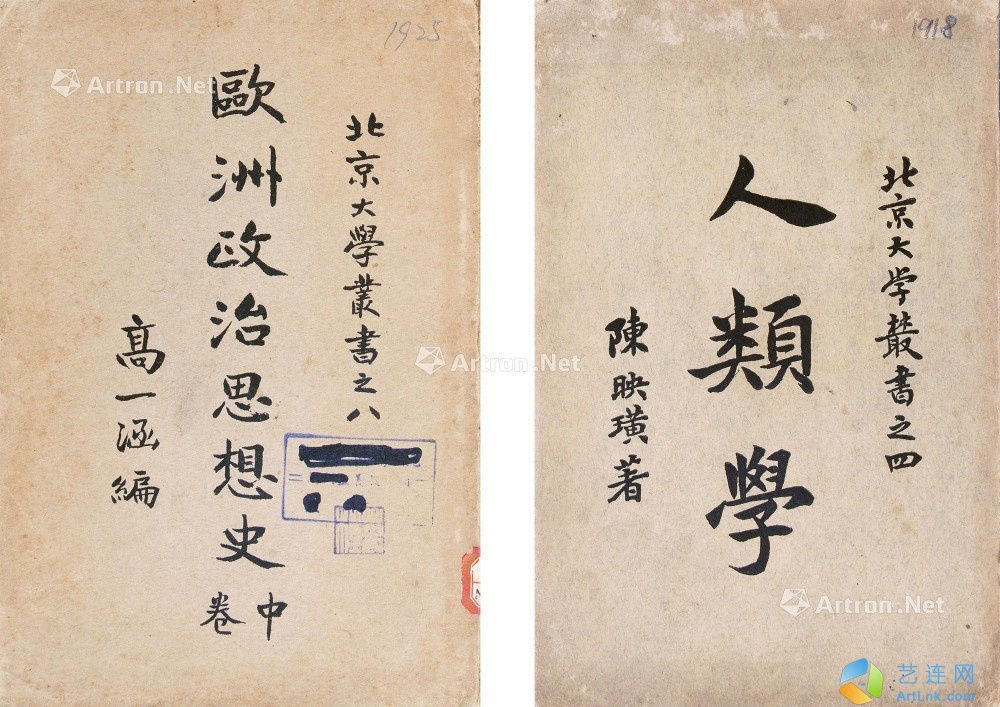 1925
北京大學叢書之八
歐洲政治思想史
中卷
高一涵編
Artron.Net
Artron.Net
1918
北京大学叢書之四
人類學
陳映璜著
Artron.Net
艺连网
ArtLnk.com